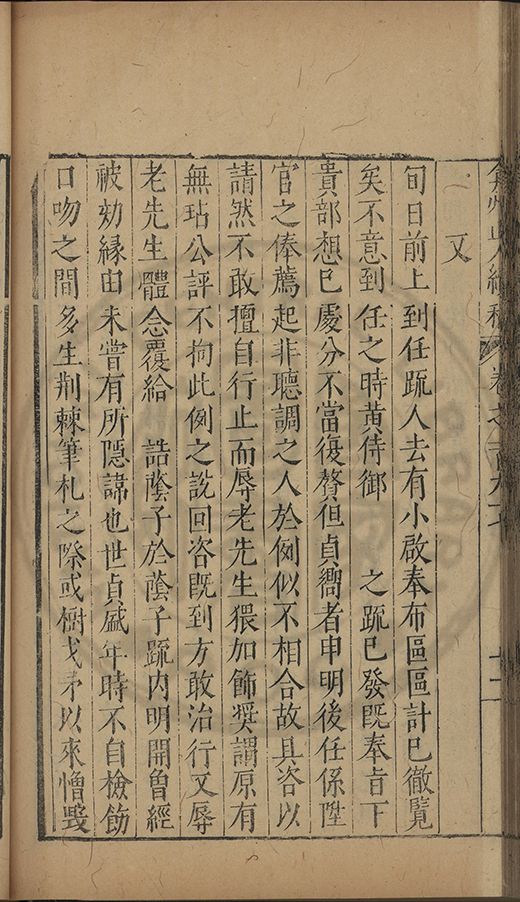 弇州山人續稿 卷之一百九十
又
旬日前上到任疏人去有小啟奉布區區計已徹覽
矣不意到任之時黃侍御　之疏已發旣奉旨下
貴部想已處分不當復贅但貞嚮者申明後任係陞
官之俸薦起非聽調之人於例似不相合故具咨以
請然不敢擅自行止而辱老先生猥加飾奬謂原有
無玷公評不拘此例之説回咨旣到方敢治行又辱
老先生體念覆給　誥蔭子於蔭子疏内明開曾經
被劾緣由未嘗有所隱諱也世貞盛年時不自檢飭
口吻之間多生荆棘筆札之際或樹戈矛以來憎毀